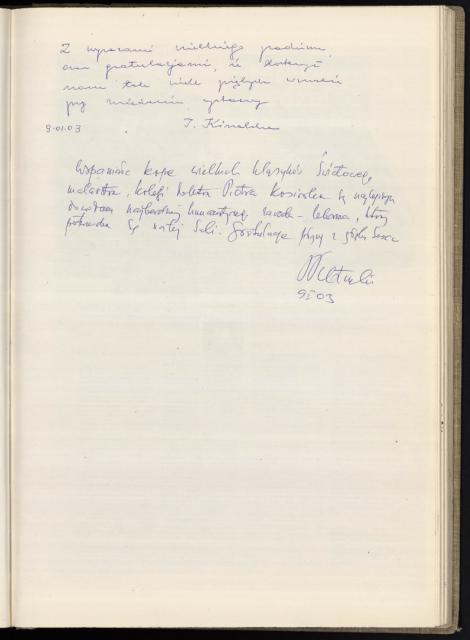 Z wyrazami wielkiego podziwu
oraz gratulacjami, że dostarczył
nam tak wiele pięknych wrażeń
przy zwiedzaniu wystawy
9.01.03 I. Kinalska
Wspaniałe kopie wielkich klasyków Światowego
malarstwa, kolegi Doktora Piotra Kosińskiego są najlepszym
dowodem najbardziej humanitarnego zawodu - lekarza, który
się w tej Sali. Gratulacje płyną z głębi Serca
9 I 03